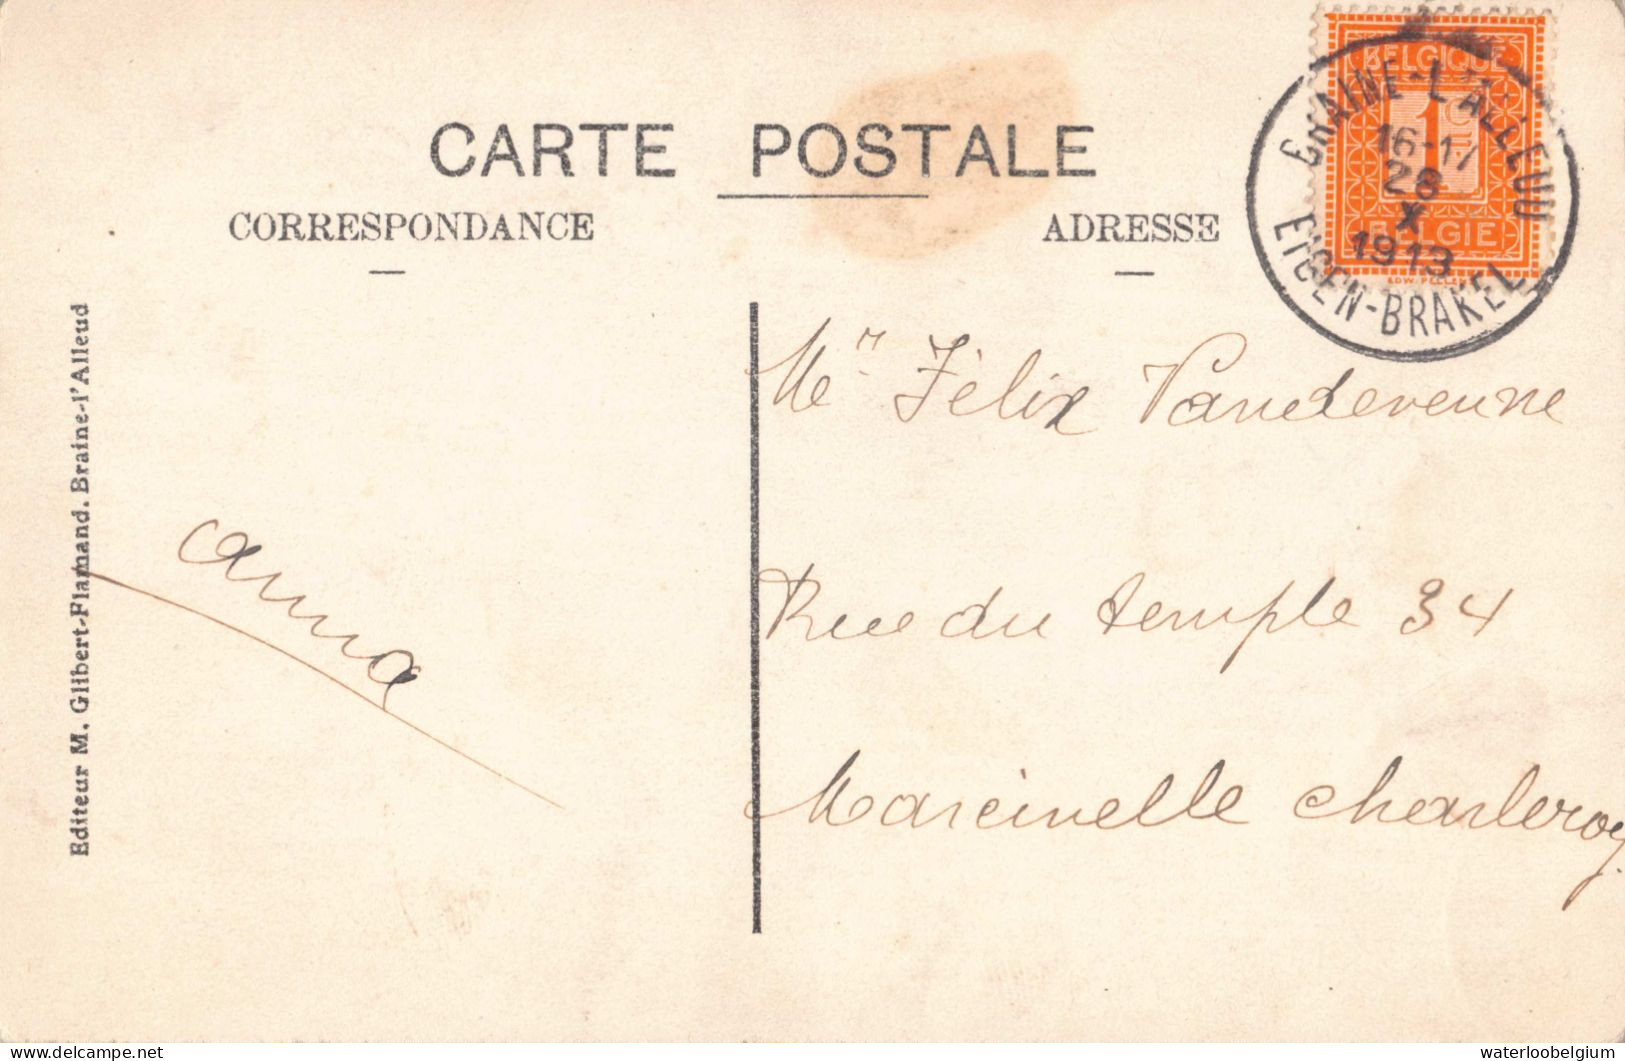 CARTE POSTALE
CORRESPONDANCE
ADRESSE
BELGIQUE
1
BELGIE
BRAINE-L'ALLEUD
16-17
28
X
1913
EIGEN-BRAKEL
Mr Félix Vandevenne
Rue du temple 34
Marcinelle Charleroy
anna
Editeur M. Glibert-Flamand. Braine-l'Alleud
delcampe.net
waterloobelgium